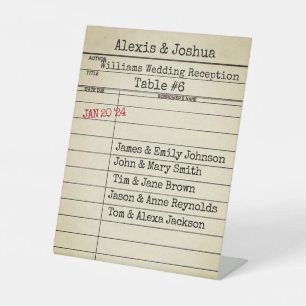 Alexis & Joshua
AUTHOR
Williams Wedding Reception
TITLE
Table #6
DATE DUE
BORROWER'S NAME
JAN 20 '24
James & Emily Johnson
John & Mary Smith
Tim & Jane Brown
Jason & Anne Reynolds
Tom & Alexa Jackson